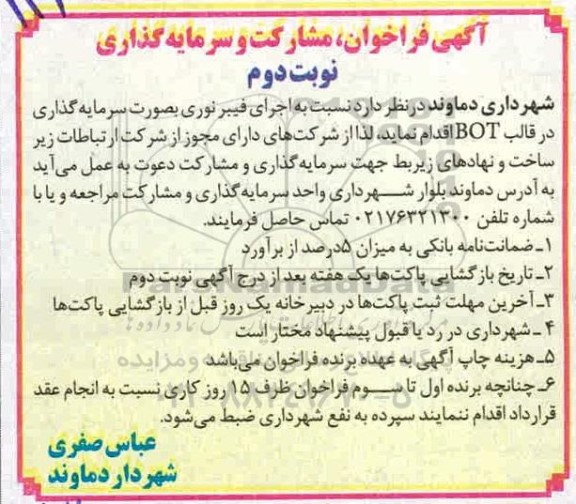 آگهی فراخوان، مشارکت و سرمایه گذاری
نوبت دوم
شهرداری دماوند در نظر دارد نسبت به اجرای فیبر نوری بصورت سرمایه گذاری
در قالب BOT اقدام نماید، لذا از شرکت‌های دارای مجوز از شرکت ارتباطات زیر
ساخت و نهادهای زیربط جهت سرمایه گذاری و مشارکت دعوت به عمل می‌آید
به آدرس دماوند بلوار شهرداری واحد سرمایه گذاری و مشارکت مراجعه و یا با
شماره تلفن ۰۲۱۷۶۳۲۱۳۰۰ تماس حاصل فرمایند.
۱ـ ضمانت‌نامه بانکی به میزان ۵درصد از برآورد
۲ـ تاریخ بازگشایی پاکت‌ها یک هفته بعد از درج آگهی نوبت دوم
۳ـ آخرین مهلت ثبت پاکت‌ها در دبیرخانه یک روز قبل از بازگشایی پاکت‌ها
۴ـ شهرداری در رد یا قبول پیشنهاد مختار است
۵ـ هزینه چاپ آگهی به عهده برنده فراخوان می‌باشد
۶ـ چنانچه برنده اول تا سوم فراخوان ظرف ۱۵ روز کاری نسبت به انجام عقد
قرارداد اقدام ننمایند سپرده به نفع شهرداری ضبط می‌شود.
عباس صفری
شهردار دماوند